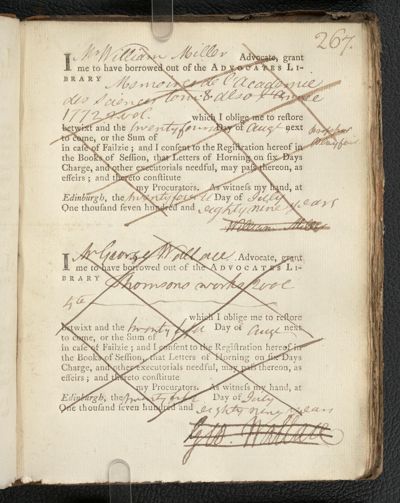 267.
I Mr William Miller Advocate, grant
me to have borrowed out of the ADVOCATES LI-
BRARY Memoires de l'Academie
des Sciences
1772 2 vol. which I oblige me to reſtore
betwixt and the twenty fourth Day of Augt next
to come, or the Sum of
in caſe of Failzie; and I conſent to the Regiſtration hereof in
the Books of Seſſion, that Letters of Horning on ſix Days
Charge, and other executorials needful, may paſs thereon, as
effeirs; and thereto conſtitute
my Procurators. As witneſs my hand, at
Edinburgh, the twenty fourth Day of July
One thouſand ſeven hundred and eighty nine years
William Miller
I Mr George Wallace Advocate, grant
me to have borrowed out of the ADVOCATES LI-
BRARY Thomsons works
4to
which I oblige me to reſtore
betwixt and the twenty Day of Augt next
to come, or the Sum of
in caſe of Failzie; and I conſent to the Regiſtration hereof in
the Books of Seſſion, that Letters of Horning on ſix Days
Charge, and other executorials needful, may paſs thereon, as
effeirs; and thereto conſtitute
my Procurators. As witneſs my hand, at
Edinburgh, the twenty Day of July
One thouſand ſeven hundred and eighty nine years
Geo. Wallace